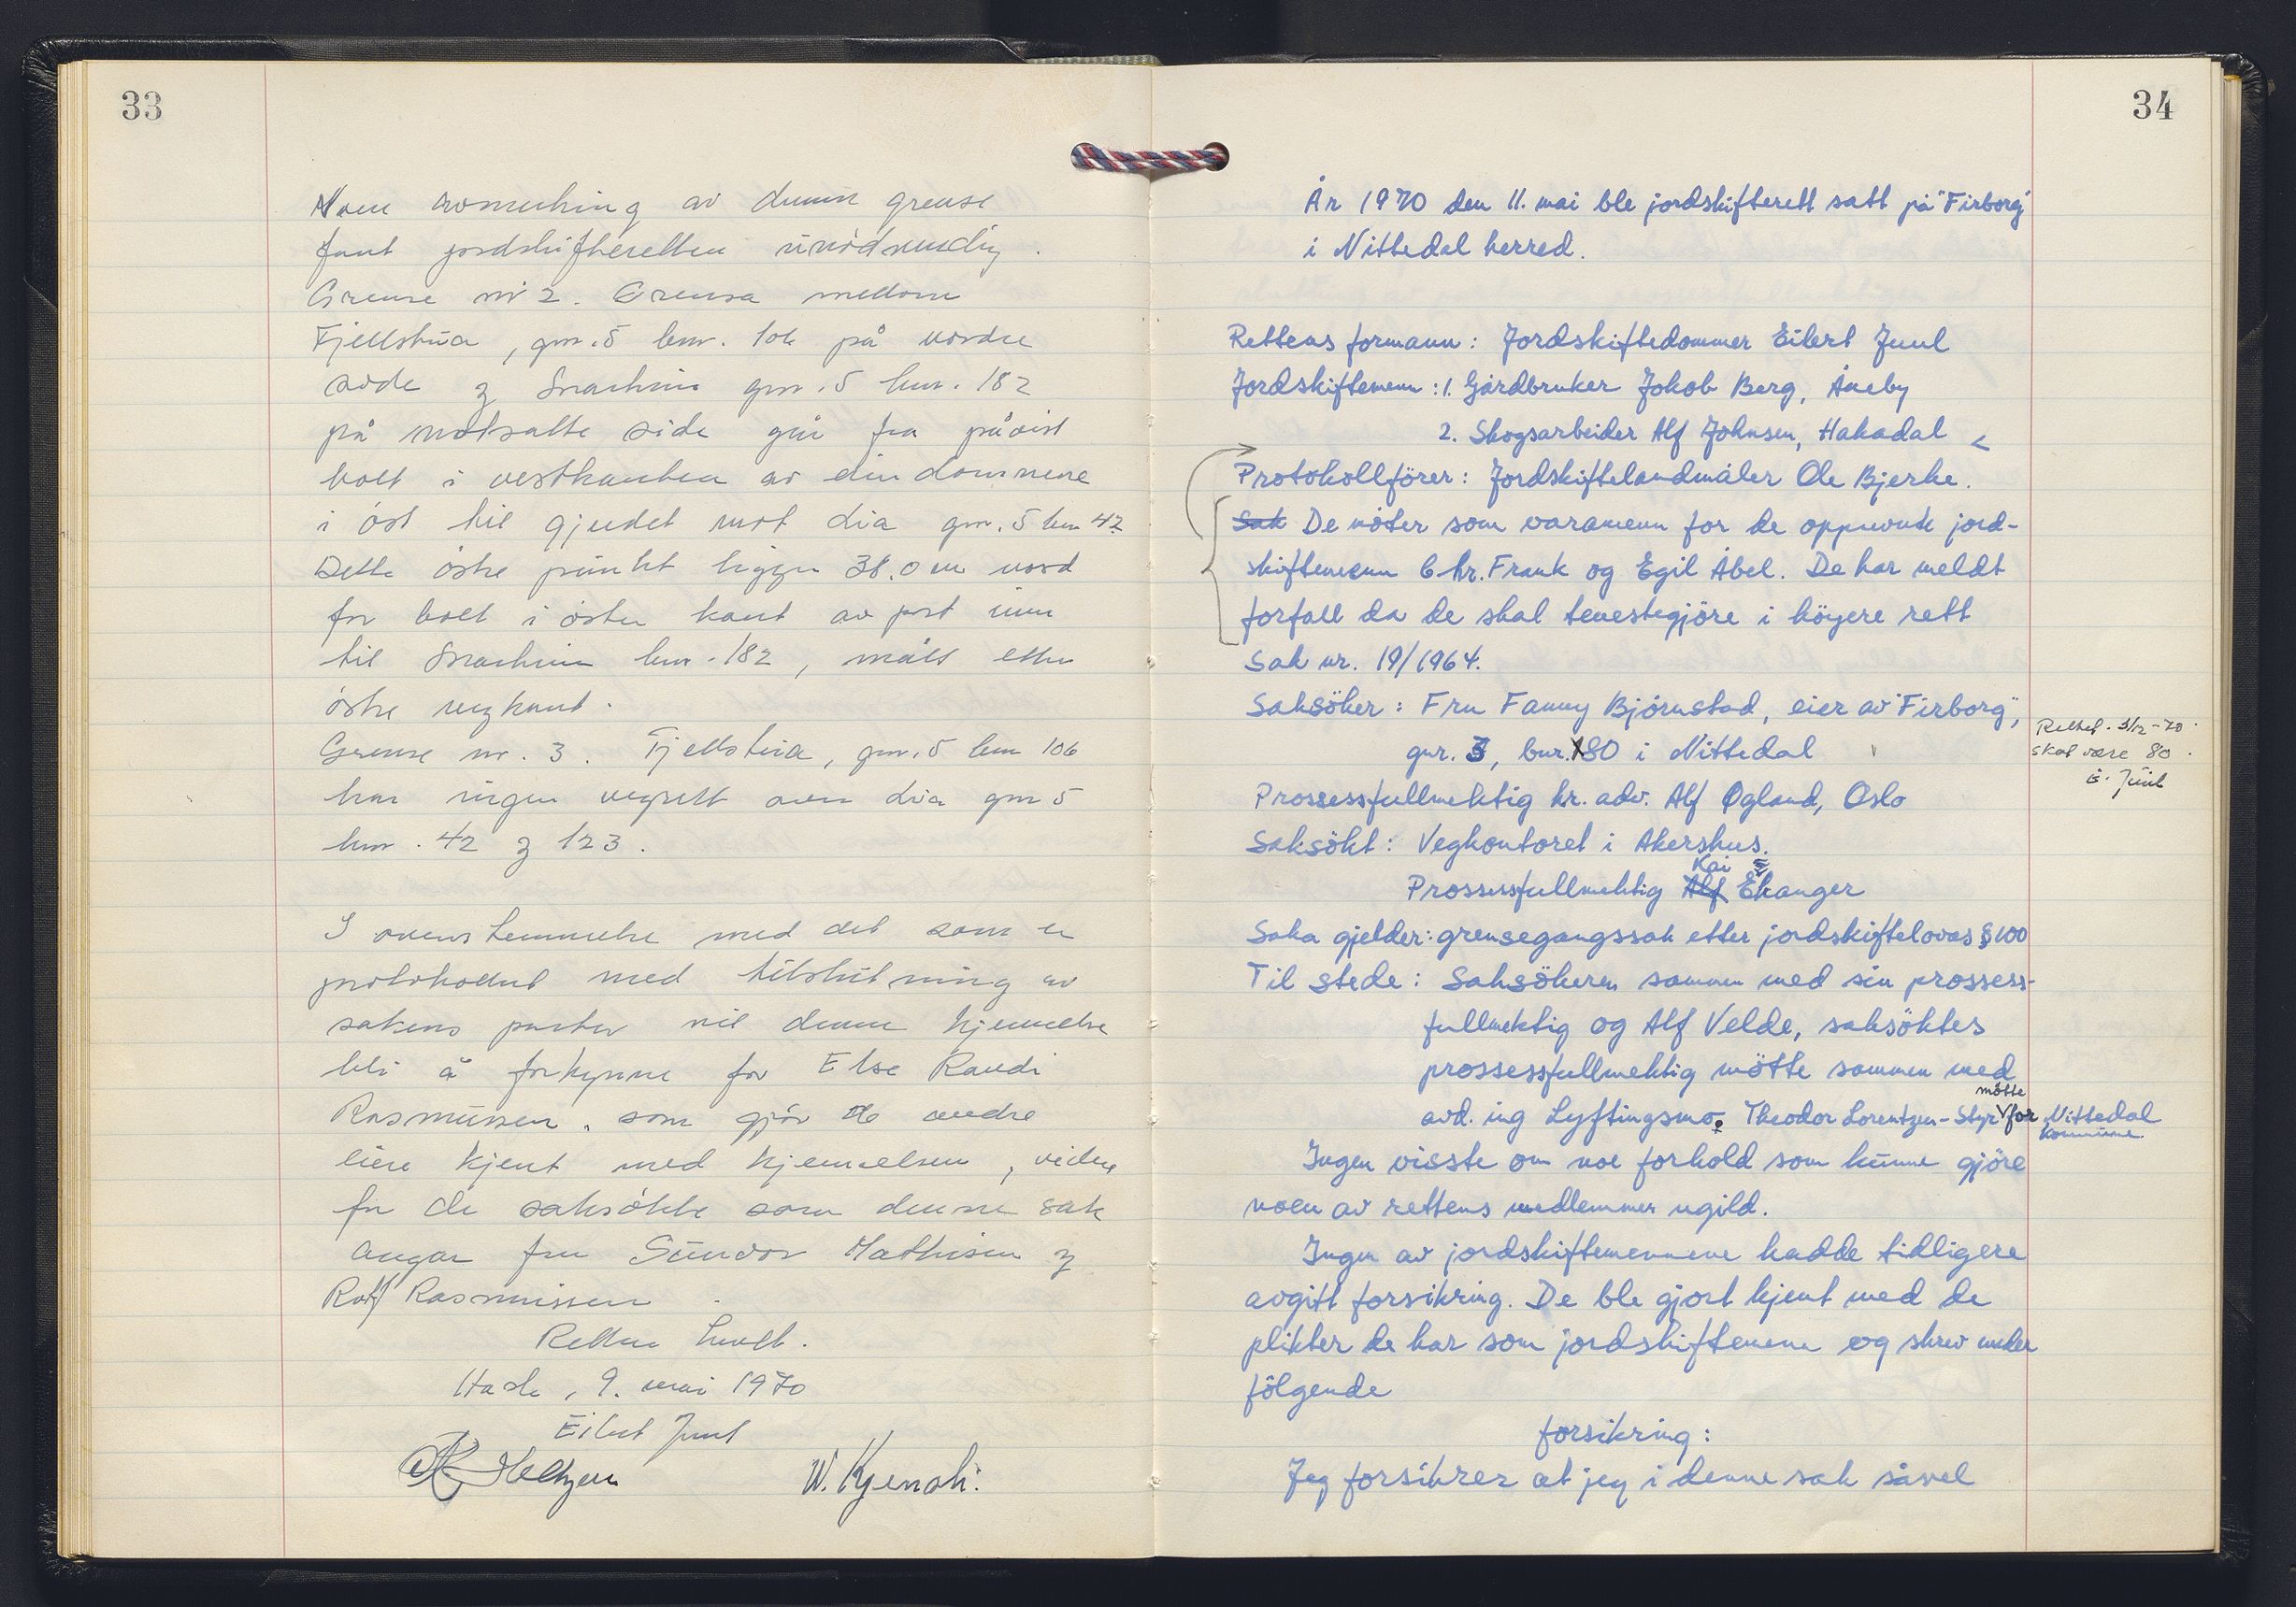 33
Noen avmerking av denne grense
fant jordskifteretten unödvendig.
Grense nr 2. Grensa mellom
Fjellstua, gnr. 5 bnr. 106 på nordre
side og gnr. 5 bnr. 182
på motsatte side går fra påvist
bolt i vestkanten av eiendommene
i öst til gjerdet mot Lia gnr. 5 bnr 42.
Dette östre punkt ligger 38.0 m nord
for bolt i östre kant av port inn
til bnr. 182, målt etter
östre vegkant.
Grense nr. 3. Fjellstua, gnr. 5 bnr 106
har ingen vegrett over Lia gnr 5
bnr. 42 og 123.
I overensstemmelse med det som er
protokollert med tilslutning av
sakens parter vil denne kjennelse
bli å forkynne for Else Randi
Rasmussen, som gjör de andre
eiere kjent med kjennelsen, videre
for de saksökte som denne sak
angår fru Gunvor Mathisen og
Rolf Rasmussen.
Retten hevet.
9. mai 1970
Eilert Juul
34
År 1970 den 11. mai ble jordskifterett satt på "Firborg"
i Nittedal herred.
Rettens formann: Jordskiftedommer Eilert Juul
Jordskiftemenn: 1. Gårdbruker Jakob Berg, Åneby
2. Skogsarbeider Alf Johnsen, Hakadal
Protokollförer: Jordskiftelandmåler Ole Bjerke.
Sak De möter som varamenn for de oppnevnte jord-
skiftemenn Chr. Frank og Egil Åbel. De har meldt
forfall da de skal tenestegjöre i höyere rett
Sak nr. 19/1964.
Saksöker: Fru Fanny Björnstad, eier av "Firborg",
gnr. 3, bnr. 180 i Nittedal
Rettet. 3/12-70.
skal være 80.
E. Juul
Prosessfullmektig hr. adv. Alf Øgland, Oslo
Saksökt: Vegkontoret i Akershus.
Kai
Prosessfullmektig Alf Ekanger
Saka gjelder: grensegangssak etter jordskiftelovas § 100
Til stede: Saksökeren sammen med sin prossess-
fullmektig og Alf Velde, saksöktes
prossessfullmektig mötte sammen med
mötte
avd. ing Lyftingsmo. Theodor Lorentzen-Styr for Nittedal
kommune.
Ingen visste om noe forhold som kunne gjöre
noen av rettens medlemmer ugild.
Ingen av jordskiftemennene hadde tidligere
avgitt forsikring. De ble gjort kjent med de
plikter de har som jordskiftemenn og skrev under
fölgende
forsikring:
Jeg forsikrer at jeg i denne sak såvel